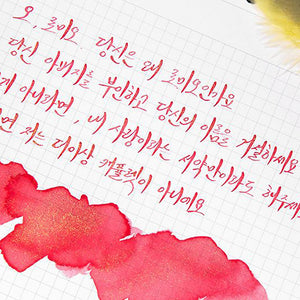 오, 로미오 당신은 왜 로미오인가요
당신 아버지를 부인하고 당신의 이름을 거절하세요
게 아니라면, 내 사랑이라는 서약만이라도 해주세
면 저는 더이상 캐퓰렛이 아니에요